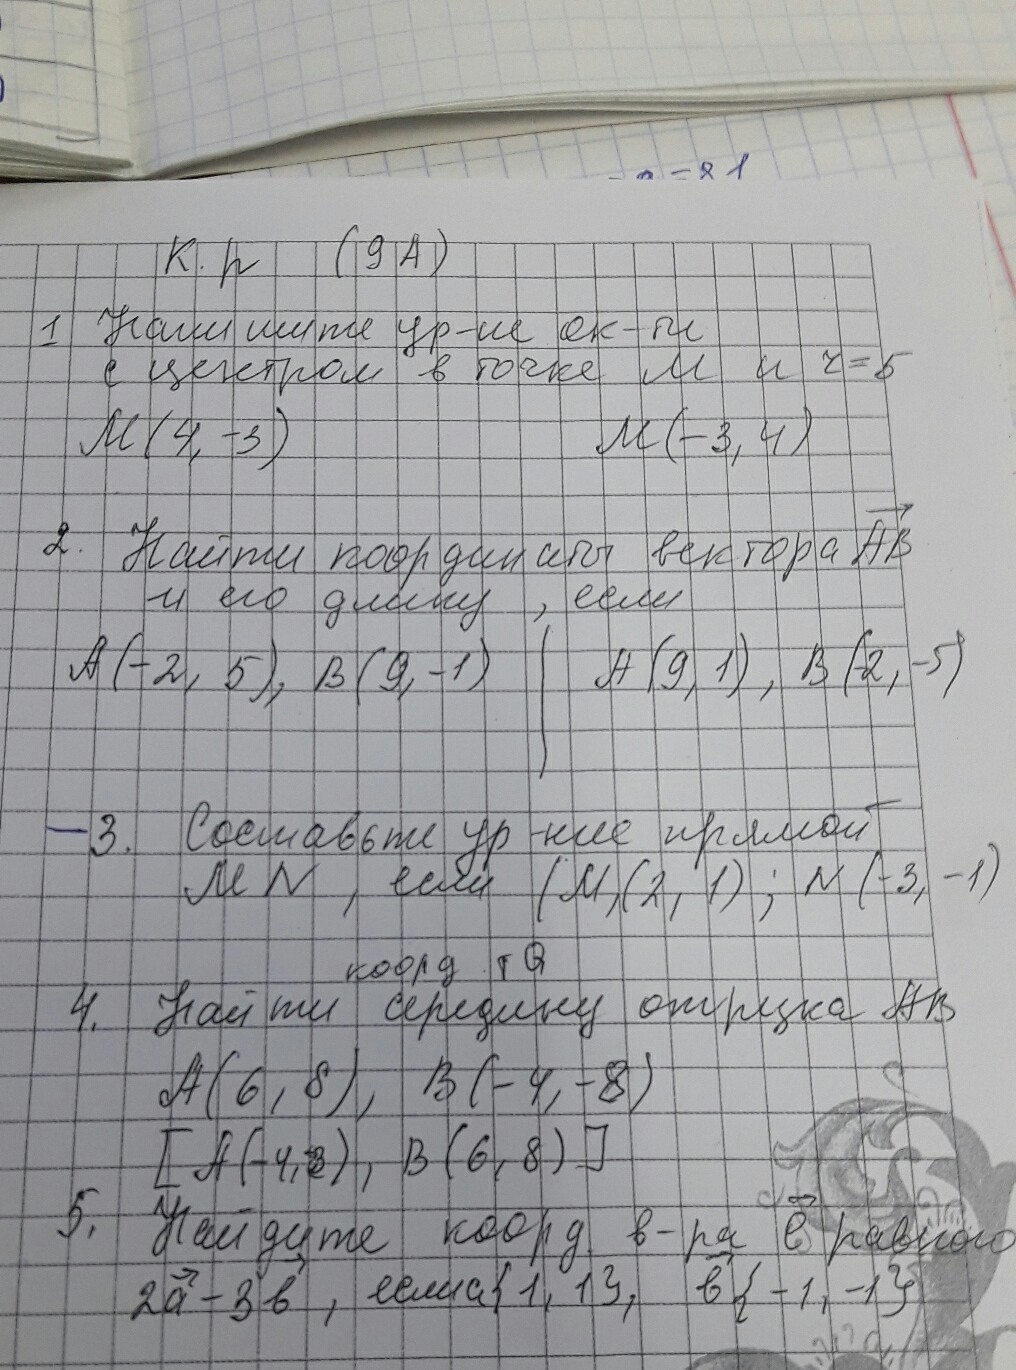 -2 = 21
К.р (9А)
1 Напишите ур-ие ок-ти
с центром в точке М и r=5
М(4,-3) М(-3,4)
2. Найти координаты вектора AB
и его длину, если
А(-2, 5), В(9,-1) | А(9,1), В(2,-5)
3. Составьте ур-ние прямой
MN, если (М,(2, 1); N(-3,-1)
коорд. т Q
4. Найти середину отрезка АВ
А(6,8), В(-4,-8)
[А(-4,8), В(6,8)]
5. Найдите коорд. в-ра в равного
2a-3в, если a{1,1}, в{-1,-1}